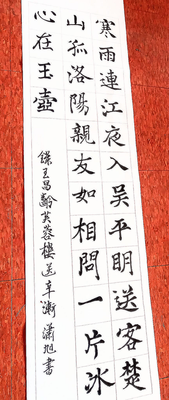 寒雨連江夜入吴平明送客楚
山孤洛陽親友如相問一片冰
心在玉壺
錄王昌齡芙蓉樓送辛漸 瀟旭書